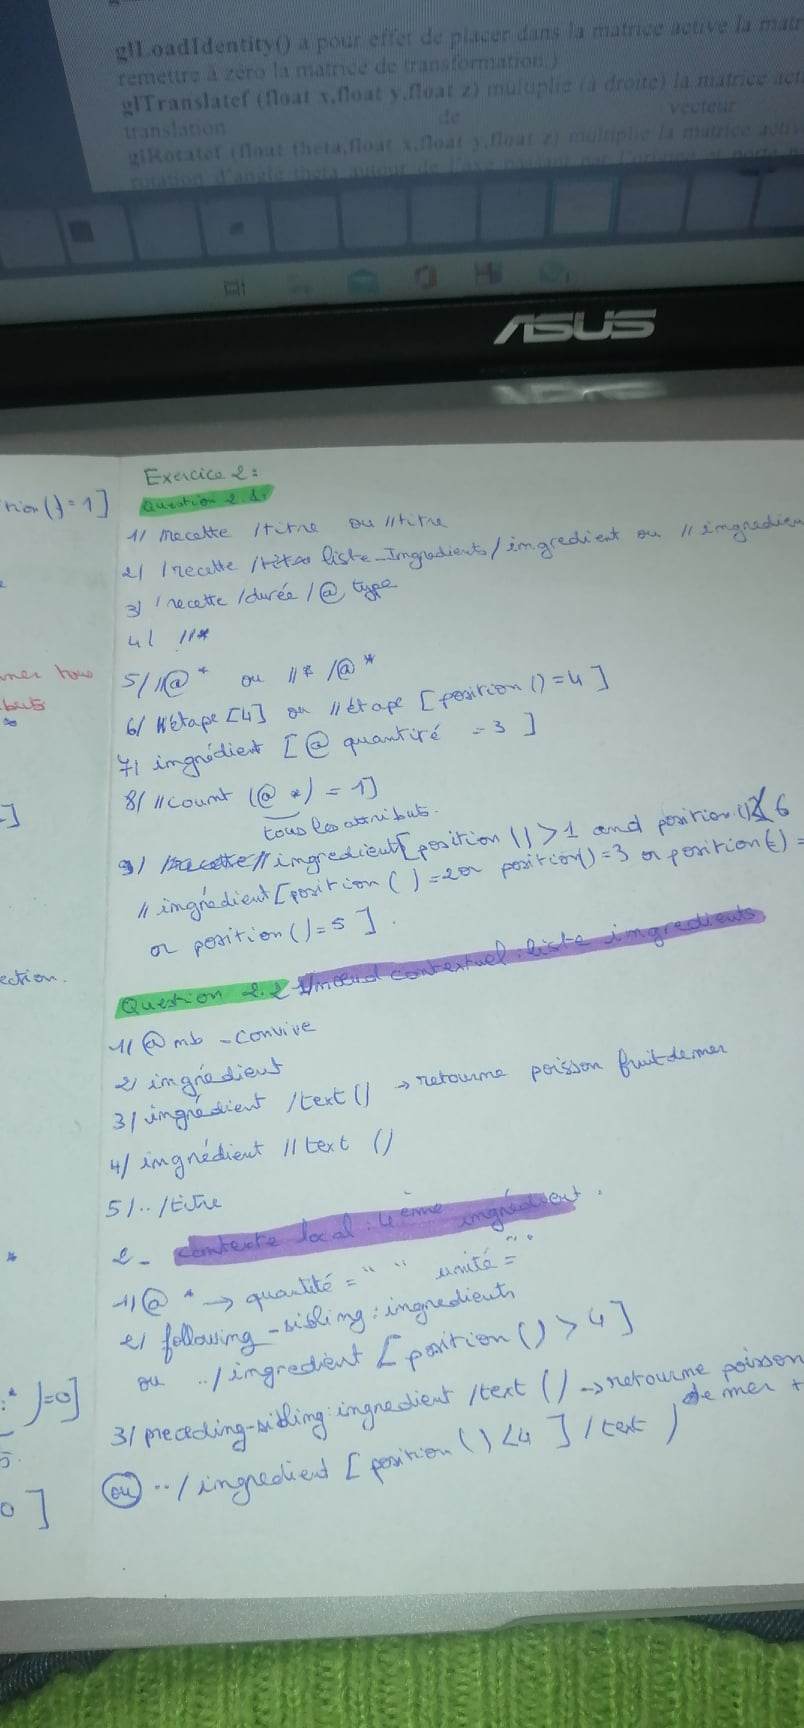 glLoadIdentity() a pour effet de placer dans la matrice active la matr
remettre à zéro la matrice de transformation.)
glTranslatef (float x,float y,float z) multiplie (à droite) la matrice act
translation de vecteur
glRotatef (float theta,float x,float y,float z) multiplie la matrice activ
rotation d'angle theta autour de l'axe passant par l'origine et porté
ASUS
Exercice 2:
Question 2.1:
1/ recette /titre ou //titre
2/ /recette / liste_Ingrédients/ingredient ou // ingredien
3/ /recette /durée /@ type
4/ //*
5/ //@ * ou //* /@ *
6/ //étape [4] ou // étape [position () = 4 ]
7/ ingrédient [@ quantité = 3 ]
8/ // count (@ *) = 1]
tous les attributs.
9/ // ingredient[position () > 1 and position () < 6
// ingrédient [position ( ) = 2 or position() = 3 or position() =
or position () = 5 ] .
Question 2.2 1/ noeud contextuel: liste ingredients
1/ @ nb - convive
2/ ingrédient
3/ ingrédient /text () → retourne poisson fruit de mer
4/ ingrédient // text ()
5/ .. /titre
2 - contexte local : 4ème ingrédient .
1/ @ * → quantité = " " unité = " "
2/ following-sibling : ingredients
ou .. / ingredient [ position () > 4 ]
3/ preceding-sibling: ingredient /text () → retourne poisson
de mer +
ou .. / ingredient [ position () < 4 ] / text )
tion () = 1 ]
mer tous
buts
*
]
ection.
*
:* ) = 0 ]
5.
0 ]